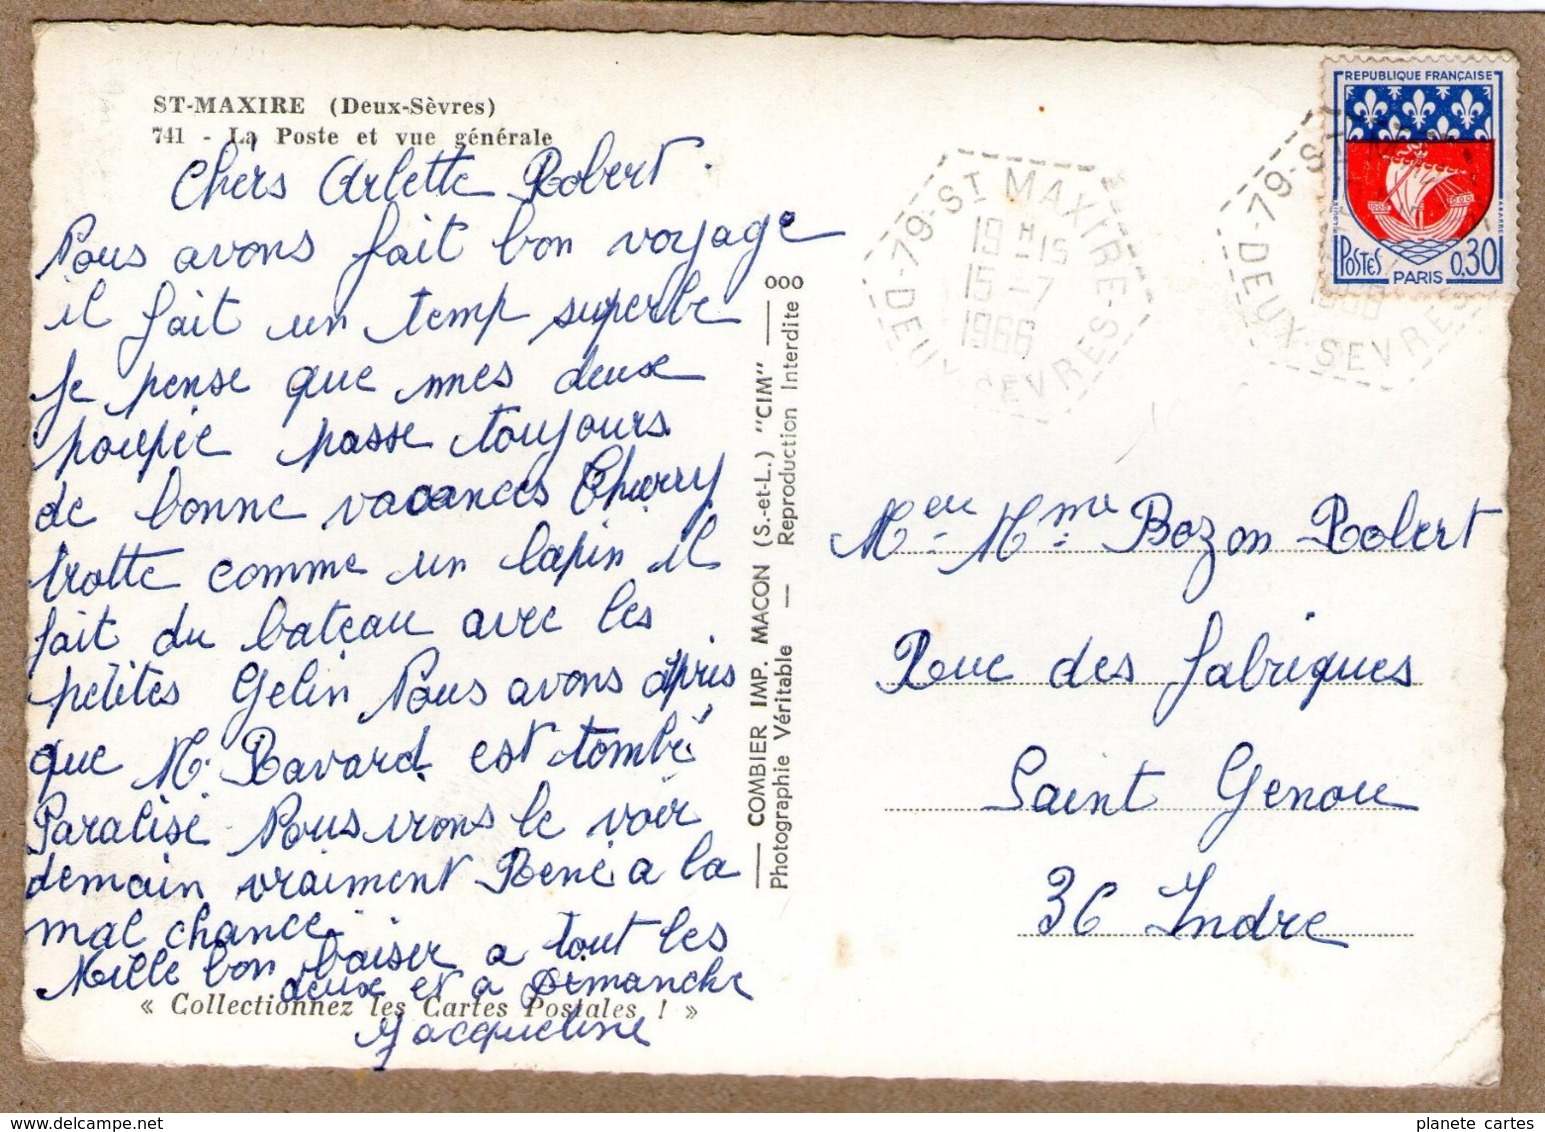 ST-MAXIRE (Deux-Sèvres)
741 - La Poste et vue générale
Chers Arlette Robert.
Nous avons fait bon voyage
il fait un temp superbe
Je pense que mes deux
poupée passe toujours
de bonne vacances Thierry
trotte comme un lapin il
fait du bateau avec les
petites Gelin Nous avons apris
que M. Ravard est tombé
Paralisé Nous irons le voir
demain vraiment René a la
mal chance.
Mille bon baiser a tout les
deux et a Dimanche
Jacqueline
« Collectionnez les Cartes Postales ! »
COMBIER IMP. MACON (S.-et-L.) "CIM"
Photographie Véritable — Reproduction Interdite
79-ST MAXIRE-DEUX-SEVRES
19 H 15
15-7
1966
79-ST
DEUX-SEVRES
1966
REPUBLIQUE FRANÇAISE
POSTES
PARIS
0,30
M. eu M.me Bozon Robert
Rue des fabriques
Saint Genou
36 Indre
planete cartes